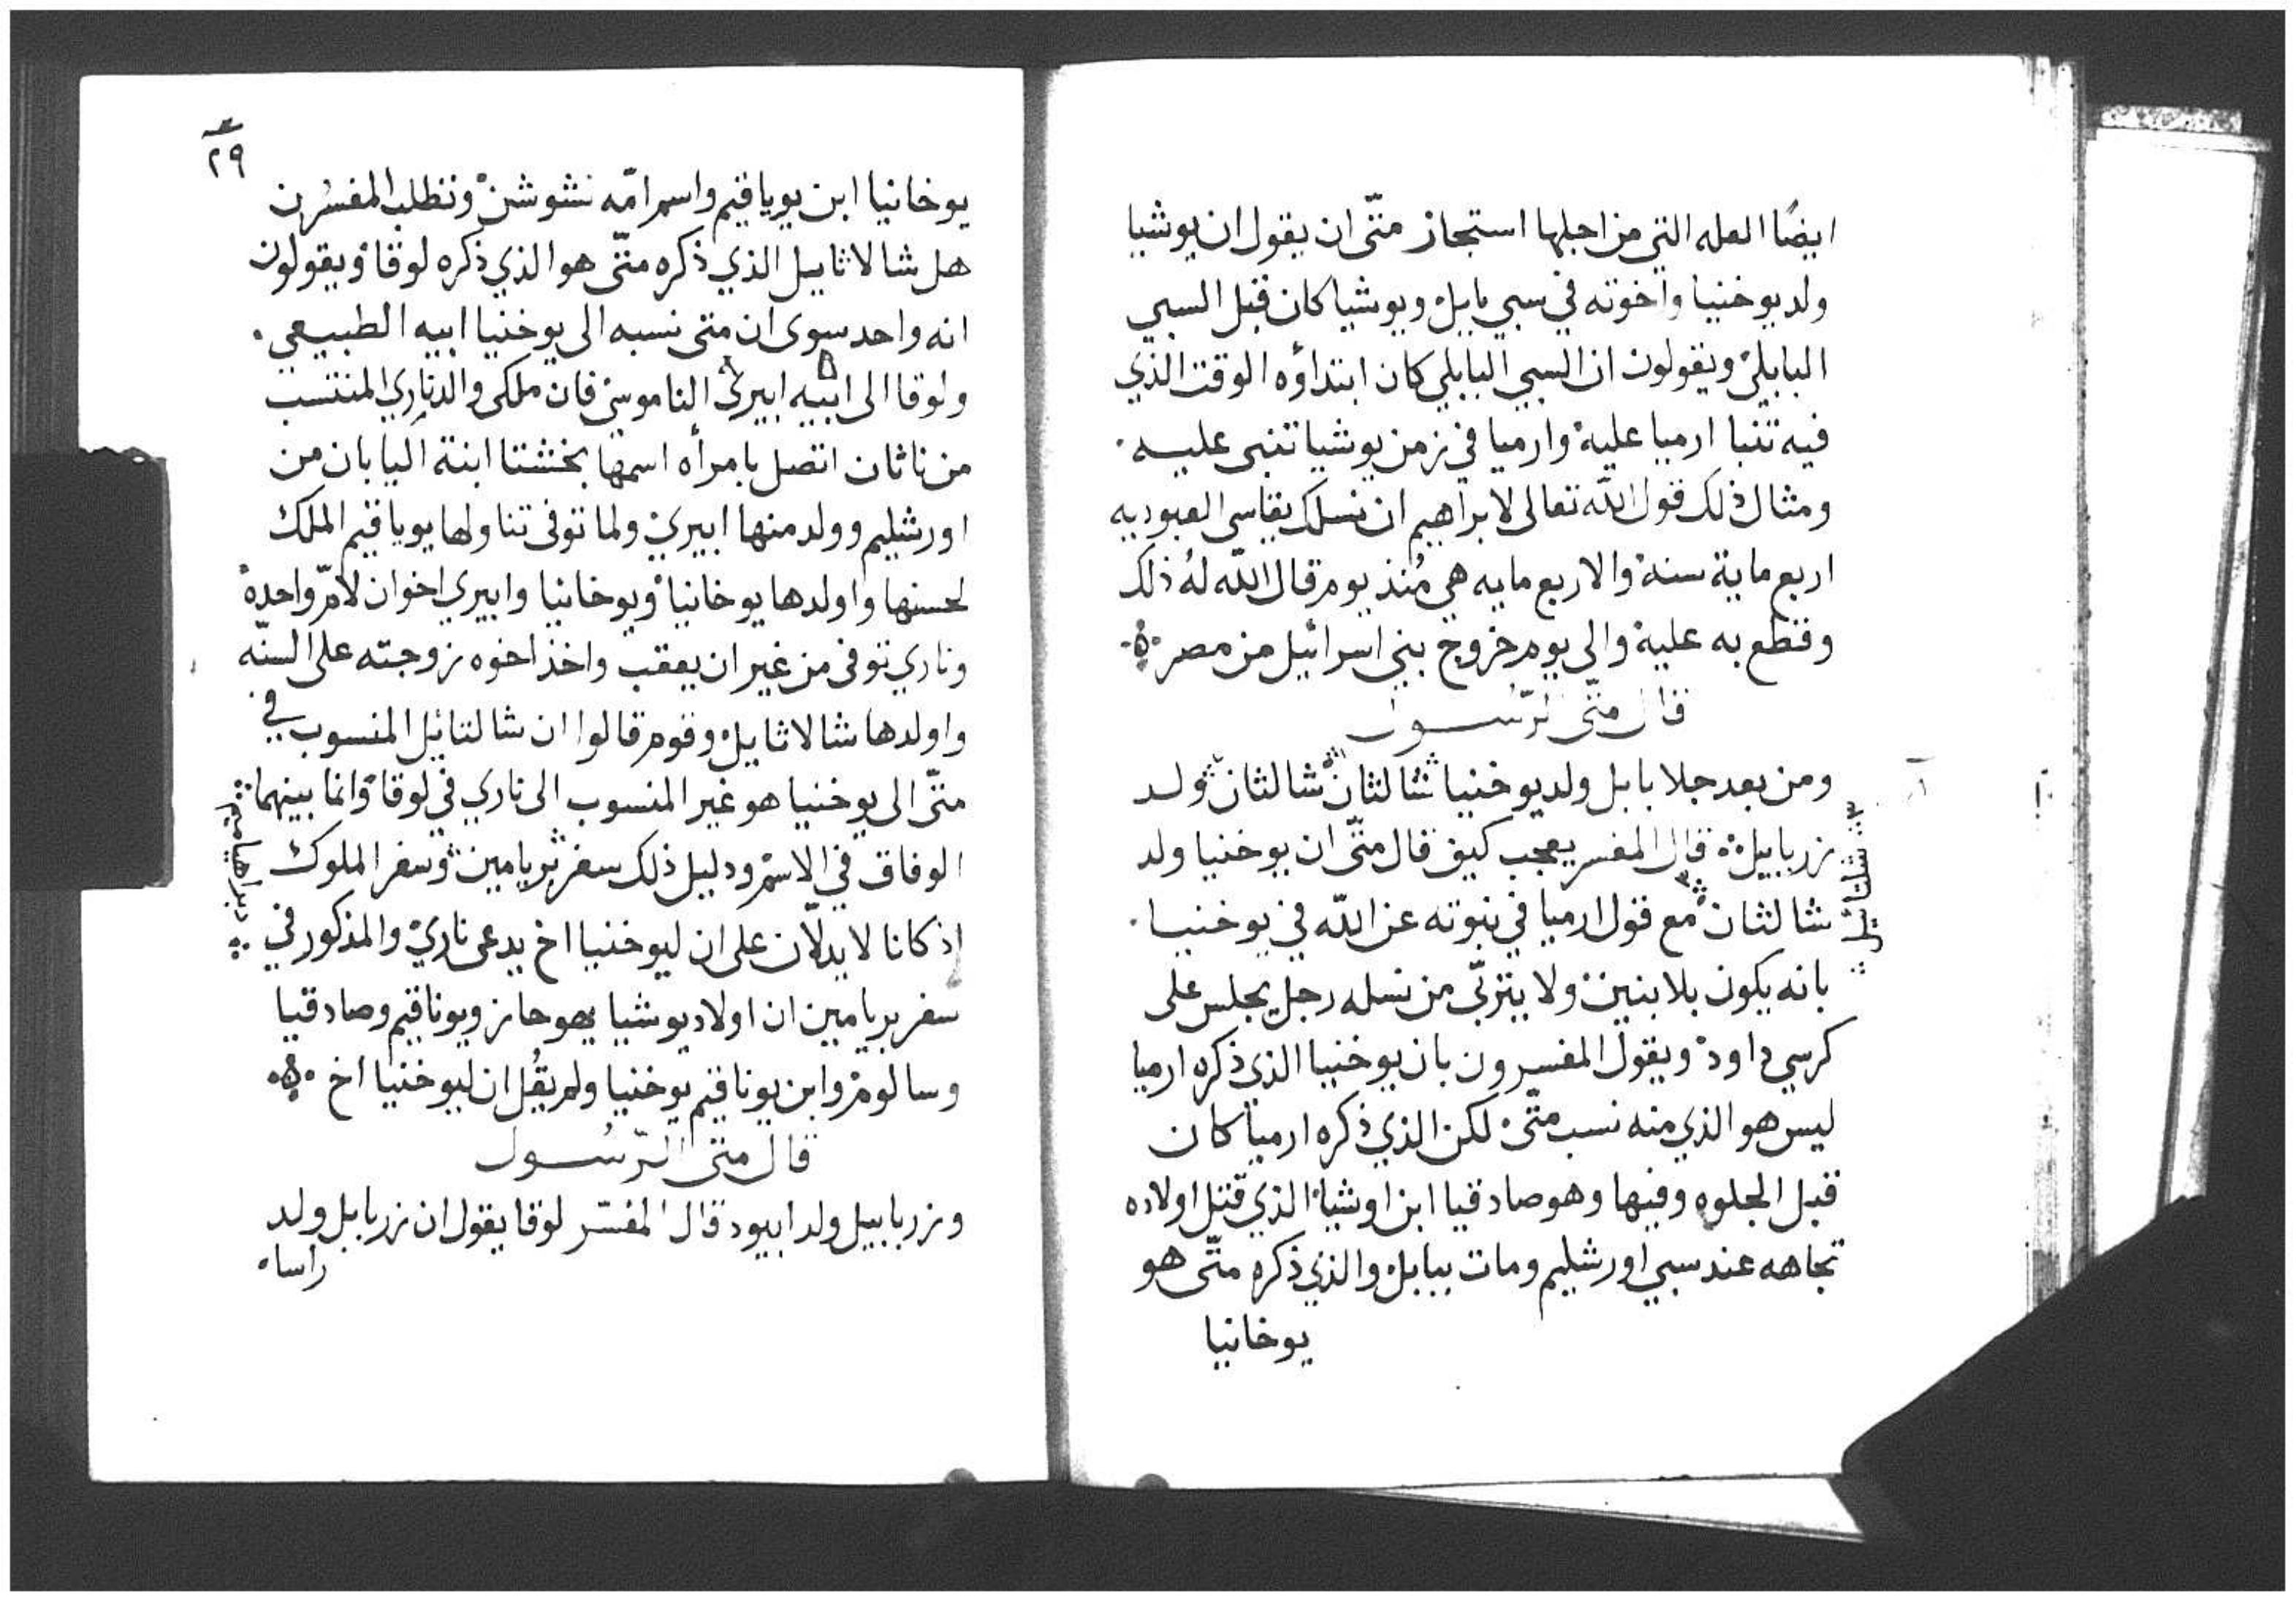 ايضًا العله التي من اجلها استجاز متّى ان يقول ان يوشيا
ولد يوخنيا واخوته في سبي بابل ويوشيا كان قبل السبي
البابلي ويقولون ان السبي البابلي كان ابتداؤه الوقت الذي
فيه تنبا ارميا عليه وارميا في زمن يوشيا تنبى عليه
ومثال ذلك قول الله تعالى لابراهيم ان نسلك يقاسي العبوديه
اربع ماية سنة والاربع مايه هي مُنذ يوم قال الله لهُ ذلك
وقطع به عليه والى يوم خروج بني اسرائيل من مصر
قال متّى الرّسُول
ومن بعد جلا بابل ولد يوخنيا شالثان شالثان ولد
زربابيل قال المفسر يعجب كيف قال متّى ان يوخنيا ولد
شالثان مع قول ارميا في نبوته عن الله في يوخنيا
بانه يكون بلا بنين ولا يتربّى من نسله رجل يجلس على
كرسي داود ويقول المفسرون بان يوخنيا الذي ذكره ارميا
ليس هو الذي منه نسب متّى لكن الذي ذكره ارميا كان
قبل الجلوه وفيها وهو صادقيا ابن اوشيا الذي قتل اولاده
تجاهه عند سبي اورشليم ومات ببابل والذي ذكره متّى هو
يوخانيا
شلتائيل
٢٩
يوخانيا ابن يوياقيم واسم امّه نشوشن وتطلب المفسُرن
هل شالاثاييل الذي ذكره متّى هو الذي ذكره لوقا ويقولون
انه واحد سوى ان متى نسبه الى يوخنيا ابيه الطبيعي
ولوقا الى ابيه ابيري الناموسي فان ملكى والد ناري المنتسب
من ناثان اتصل بامرأه اسمها بخشتا ابنة اليابان من
اورشليم وولد منها ابيري ولما توفى تناولها يوياقيم الملك
لحسنها واولدها يوخانيا ويوخانيا وابيري اخوان لامّ واحدة
وناري توفى من غير ان يعقب واخذ اخوه زوجته على السنّه
واولدها شالاثايل وقوم قالوا ان شالتائيل المنسوب في
متّى الى يوخنيا هو غير المنسوب الى ناري في لوقا وانما بينهما
الوفاق في الاسم ودليل ذلك سفر بريامين وسفر الملوك
اذ كانا لا يدلّان على ان ليوخنيا اخ يدعى ناري والمذكور في
سفر بريامين ان اولاد يوشيا يهوحاز ويوناقيم وصادقيا
وسالوم وابن يوناقيم يوخنيا ولم يقُل ان ليوخنيا اخ
قال متى الرّسُول
وزربابيل ولد ابيود قال المفسّر لوقا يقول ان زربابل ولد
راسا